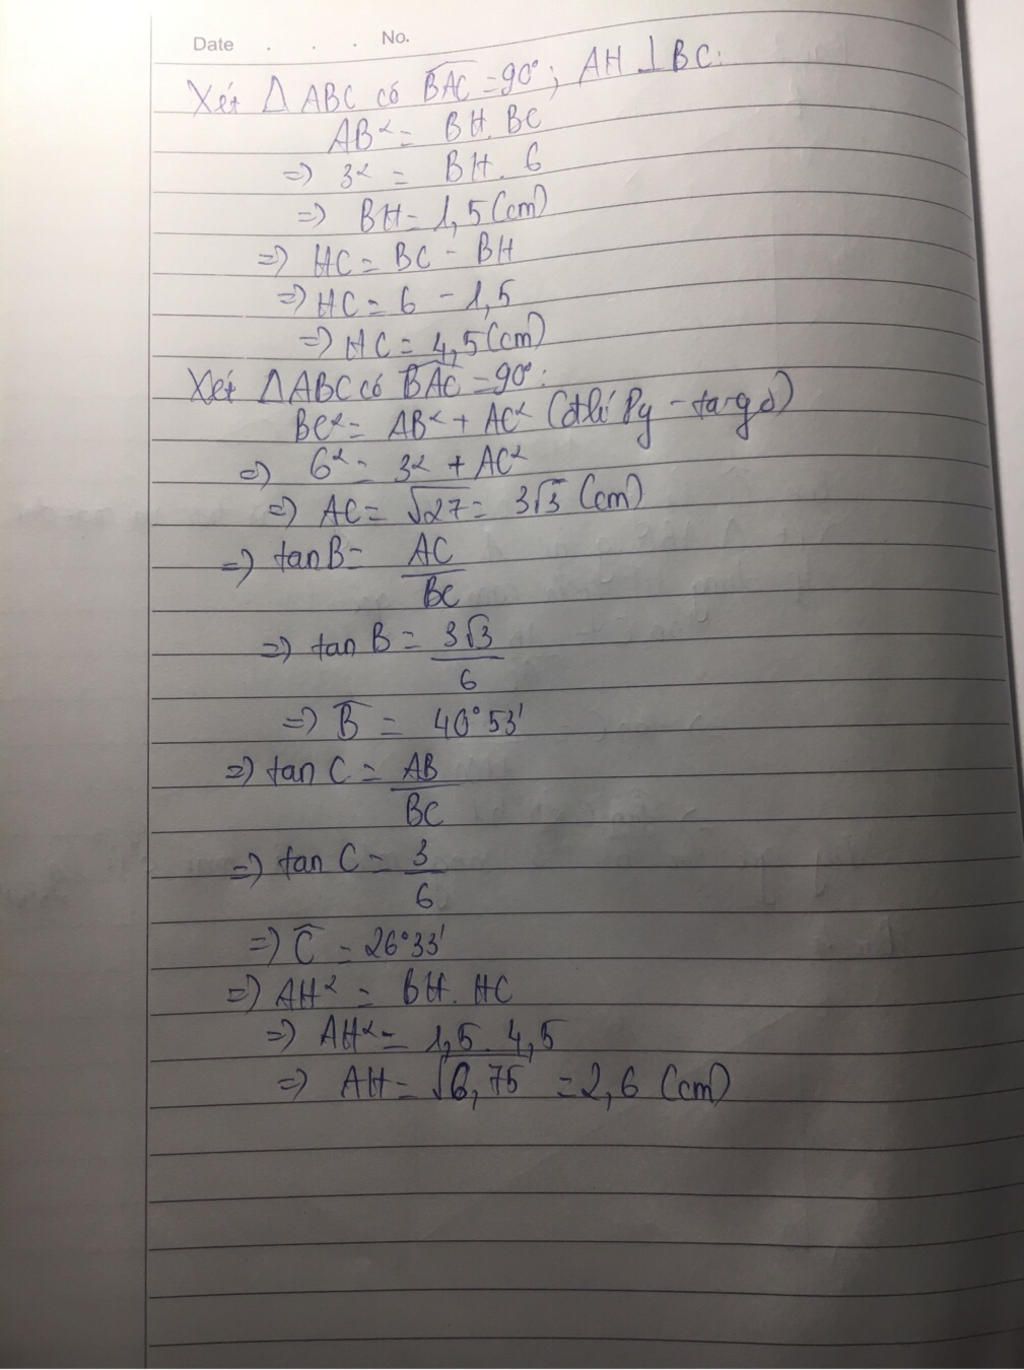 Date . . . No.
Xét Δ ABC có BAC = 90°; AH ⊥ BC:
AB² = BH. BC
=) 3² = BH. 6
=) BH = 1,5 (cm)
=) HC = BC - BH
=) HC = 6 - 1,5
=) HC = 4,5 (cm)
Xét Δ ABC có BAC = 90°:
BC² = AB² + AC² (đlí Py-ta-go)
=) 6² = 3² + AC²
=) AC = √27 = 3√3 (cm)
=) tan B = AC/BC
=) tan B = 3√3/6
=) B = 40°53'
=) tan C = AB/BC
=) tan C = 3/6
=) C = 26°33'
=) AH² = BH. HC
=) AH² = 1,5. 4,5
=) AH = √6,75 = 2,6 (cm)